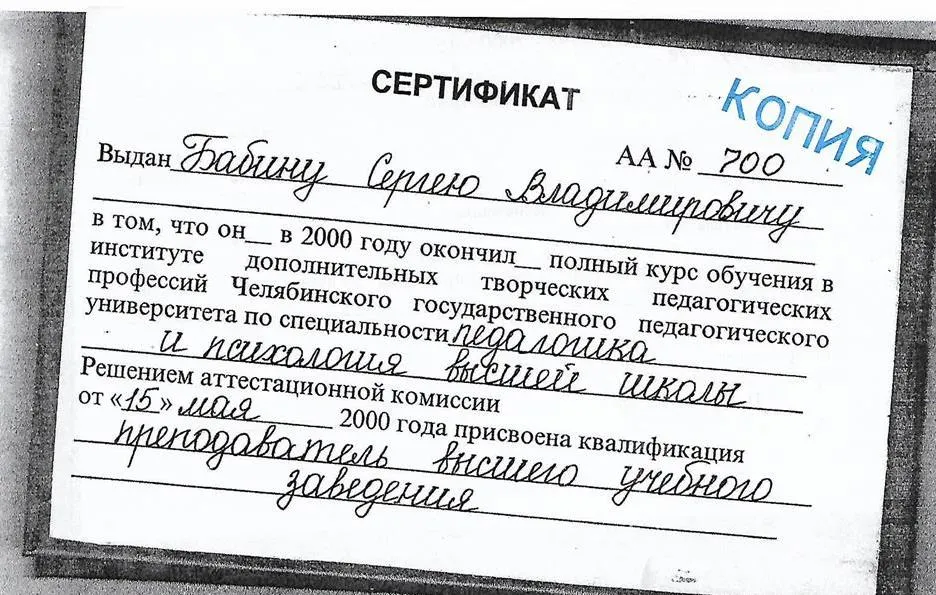 СЕРТИФИКАТ
КОПИЯ
АА № 700
Выдан Бабину Сергею Владимировичу
в том, что он__ в 2000 году окончил__ полный курс обучения в
институте дополнительных творческих педагогических
профессий Челябинского государственного педагогического
университета по специальности педагогика
и психология высшей школы
Решением аттестационной комиссии
от «15» мая 2000 года присвоена квалификация
преподаватель высшего учебного
заведения